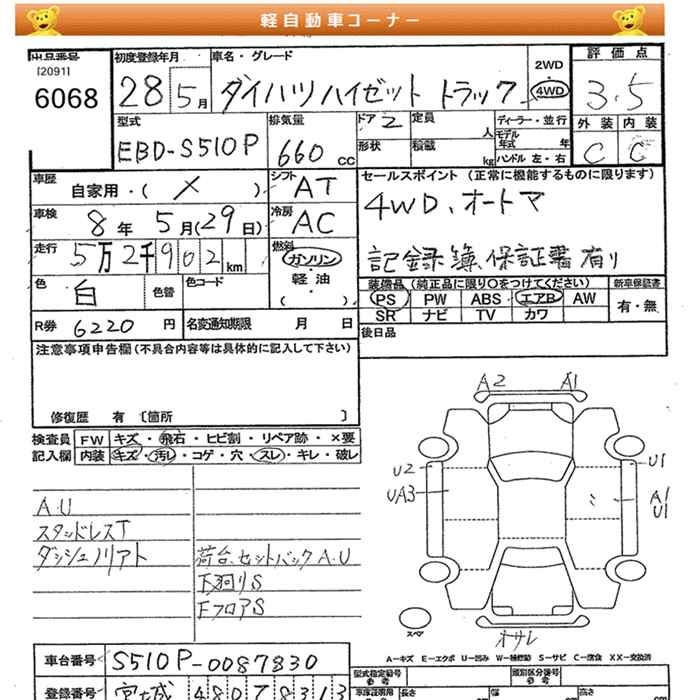 軽自動車コーナー
出品番号
[2091]
6068
初度登録年月
28 5月
車名・グレード
ダイハツハイゼット トラック
2WD
・
4WD
評価点
3.5
外装 内装
C C
型式
EBD-S510P
排気量
660 cc
ドア 2
形状
定員 人
積載 kg
ディーラー・並行
モデル年式 年
ハンドル 左・右
車歴
自家用・( × )
シフト
AT
セールスポイント (正常に機能するものに限ります)
4WD、オートマ
記録簿、保証書有り
車検
8年 5月(29日)
冷房
AC
走行
5万2千902 km
燃料
ガソリン
・
軽油
色
白
色替
色コード
装備品 (純正品に限り○をつけてください)
新車保証書
PS PW ABS エアB AW
有・無
SR ナビ TV カワ
R券 6220 円
名変通知期限 月 日
後日品
注意事項申告欄 (不具合内容等は具体的に記入して下さい)
修復歴 有 〔箇所 〕
検査員記入欄
FW キズ・飛石・ヒビ割・リペア跡・×要
内装 キズ・汚レ・コゲ・穴・スレ・キレ・破レ
A.U
スタッドレスT
ダッシュノリアト
荷台、セットバックA.U
下廻りS
FフロアS
A2 A1
U2
UA3
U1
A1
U1
スペア
オサレ
A-キズ E-エクボ U-凹み W-補修跡 S-サビ C-腐食 XX-交換済
車台番号 S510P-0087830
登録番号 宮城 480 7 8313
型式指定番号
類別区分番号
車庫証明用参考
長さ
幅
高さ